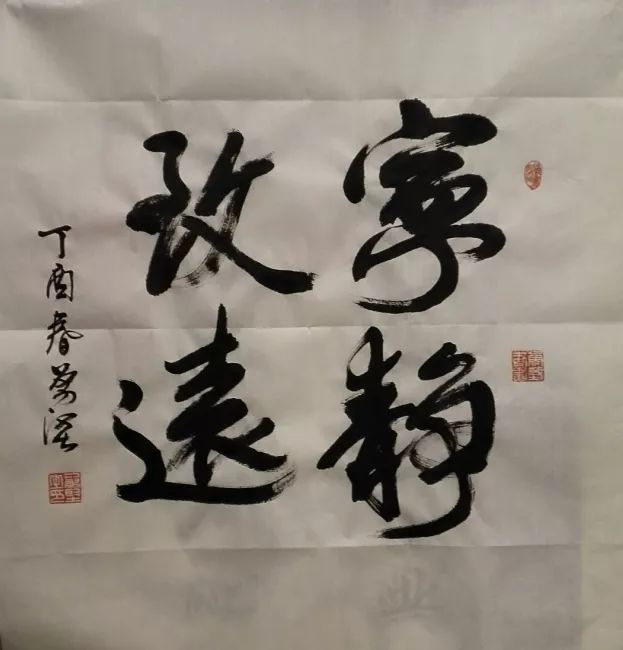 寧静
致遠
丁酉春